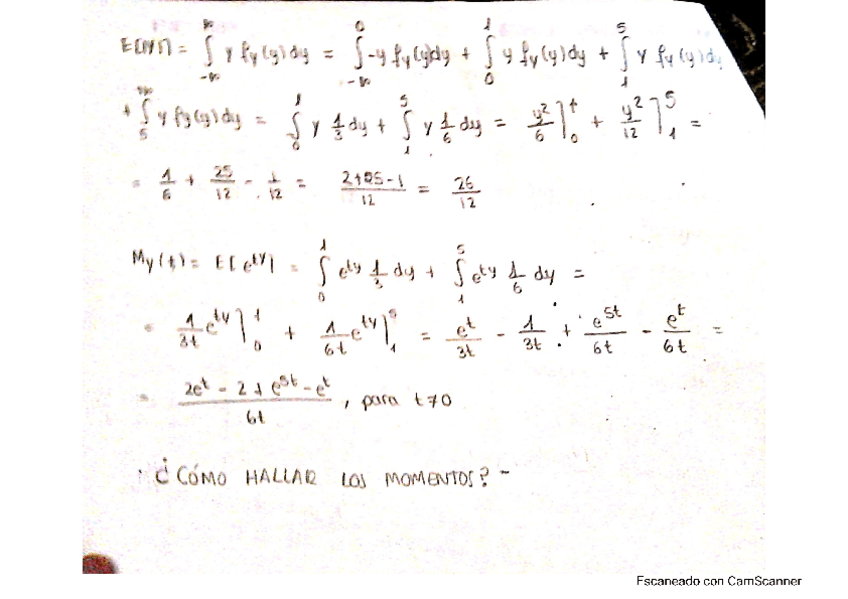 E(|Y|) = ∫_{-∞}^{∞} y f_Y(y)dy = ∫_{-∞}^{0} -y f_Y(y)dy + ∫_{0}^{1} y f_Y(y)dy + ∫_{1}^{5} y f_Y(y)dy
+ ∫_{5}^{∞} y f_Y(y)dy = ∫_{0}^{1} y 1/3 dy + ∫_{1}^{5} y 1/6 dy = y²/6 ]_{0}^{1} + y²/12 ]_{1}^{5} =
= 1/6 + 25/12 - 1/12 = (2+25-1)/12 = 26/12
M_Y(t) = E[e^{tY}] = ∫_{0}^{1} e^{ty} 1/3 dy + ∫_{1}^{5} e^{ty} 1/6 dy =
= 1/(3t) e^{ty} ]_{0}^{1} + 1/(6t) e^{ty} ]_{1}^{5} = e^t/(3t) - 1/(3t) + e^{5t}/(6t) - e^t/(6t) =
= (2e^t - 2 + e^{5t} - e^t)/(6t), para t≠0
¿CÓMO HALLAR LOS MOMENTOS? -
Escaneado con CamScanner